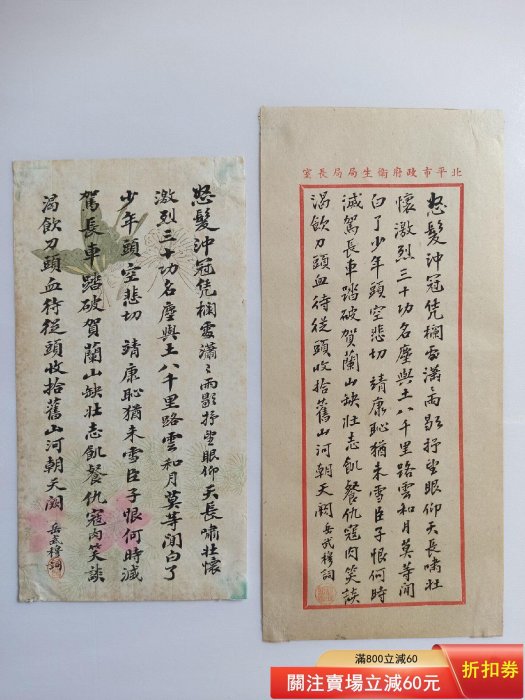 怒髮沖冠凭欄處瀟〻雨歇抒望眼仰天長嘯壯懷
激烈三十功名塵與土八千里路雲和月莫等閒白了
少年頭空悲切 靖康恥猶未雪臣子恨何時滅
駕長車踏破賀蘭山缺壯志飢餐仇寇肉笑談
渴飲刀頭血待從頭收拾舊山河朝天闕 岳武穆詞
北平市政府衛生局局長室
怒髮沖冠凭欄處瀟〻雨歇抒望眼仰天長嘯壯
懷激烈三十功名塵與土八千里路雲和月莫等閒
白了少年頭空悲切 靖康恥猶未雪臣子恨何時
滅駕長車踏破賀蘭山缺壯志飢餐仇寇肉笑談
渴飲刀頭血待從頭收拾舊山河朝天闕 岳武穆詞
滿800立減60
關注賣場立減60元
折扣券